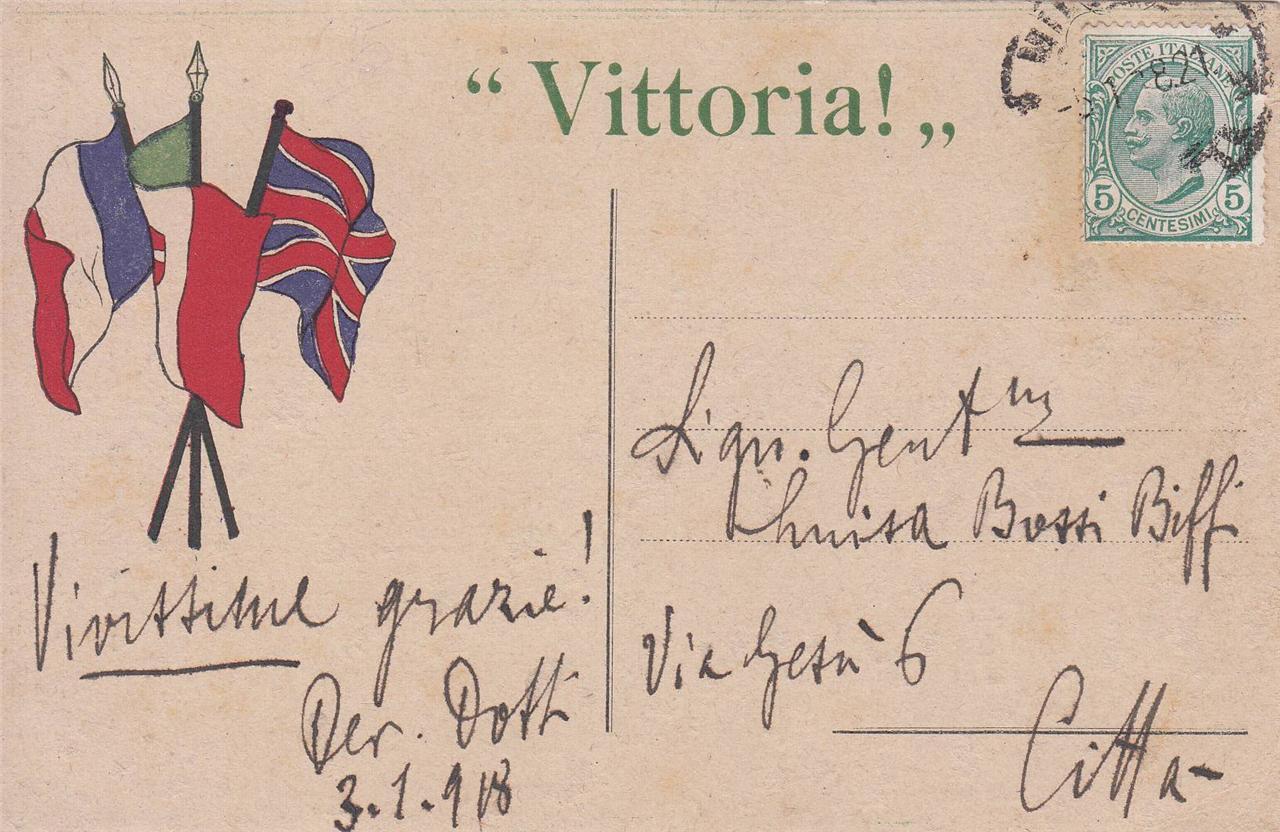 “ Vittoria! „
POSTE ITALIANE
5 CENTESIMI 5
Vivissime grazie!
Dev. Dotti
3.1.918
Sign. Gent ma
Luisa Bossi Biffi
Via Gesù 6
Città